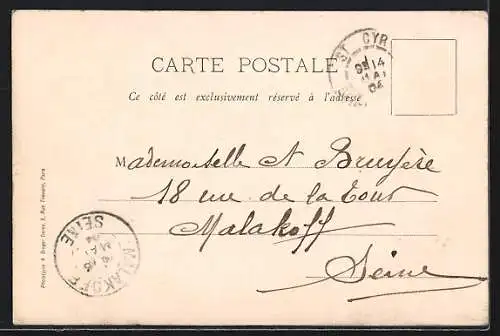 CARTE POSTALE
Ce côté est exclusivement réservé à l'adresse
ST CYR
14
MAI
04
Mademoiselle A Bruyère
18 rue de la Tour
Malakoff
Seine
MALAKOFF
SEINE
MAI